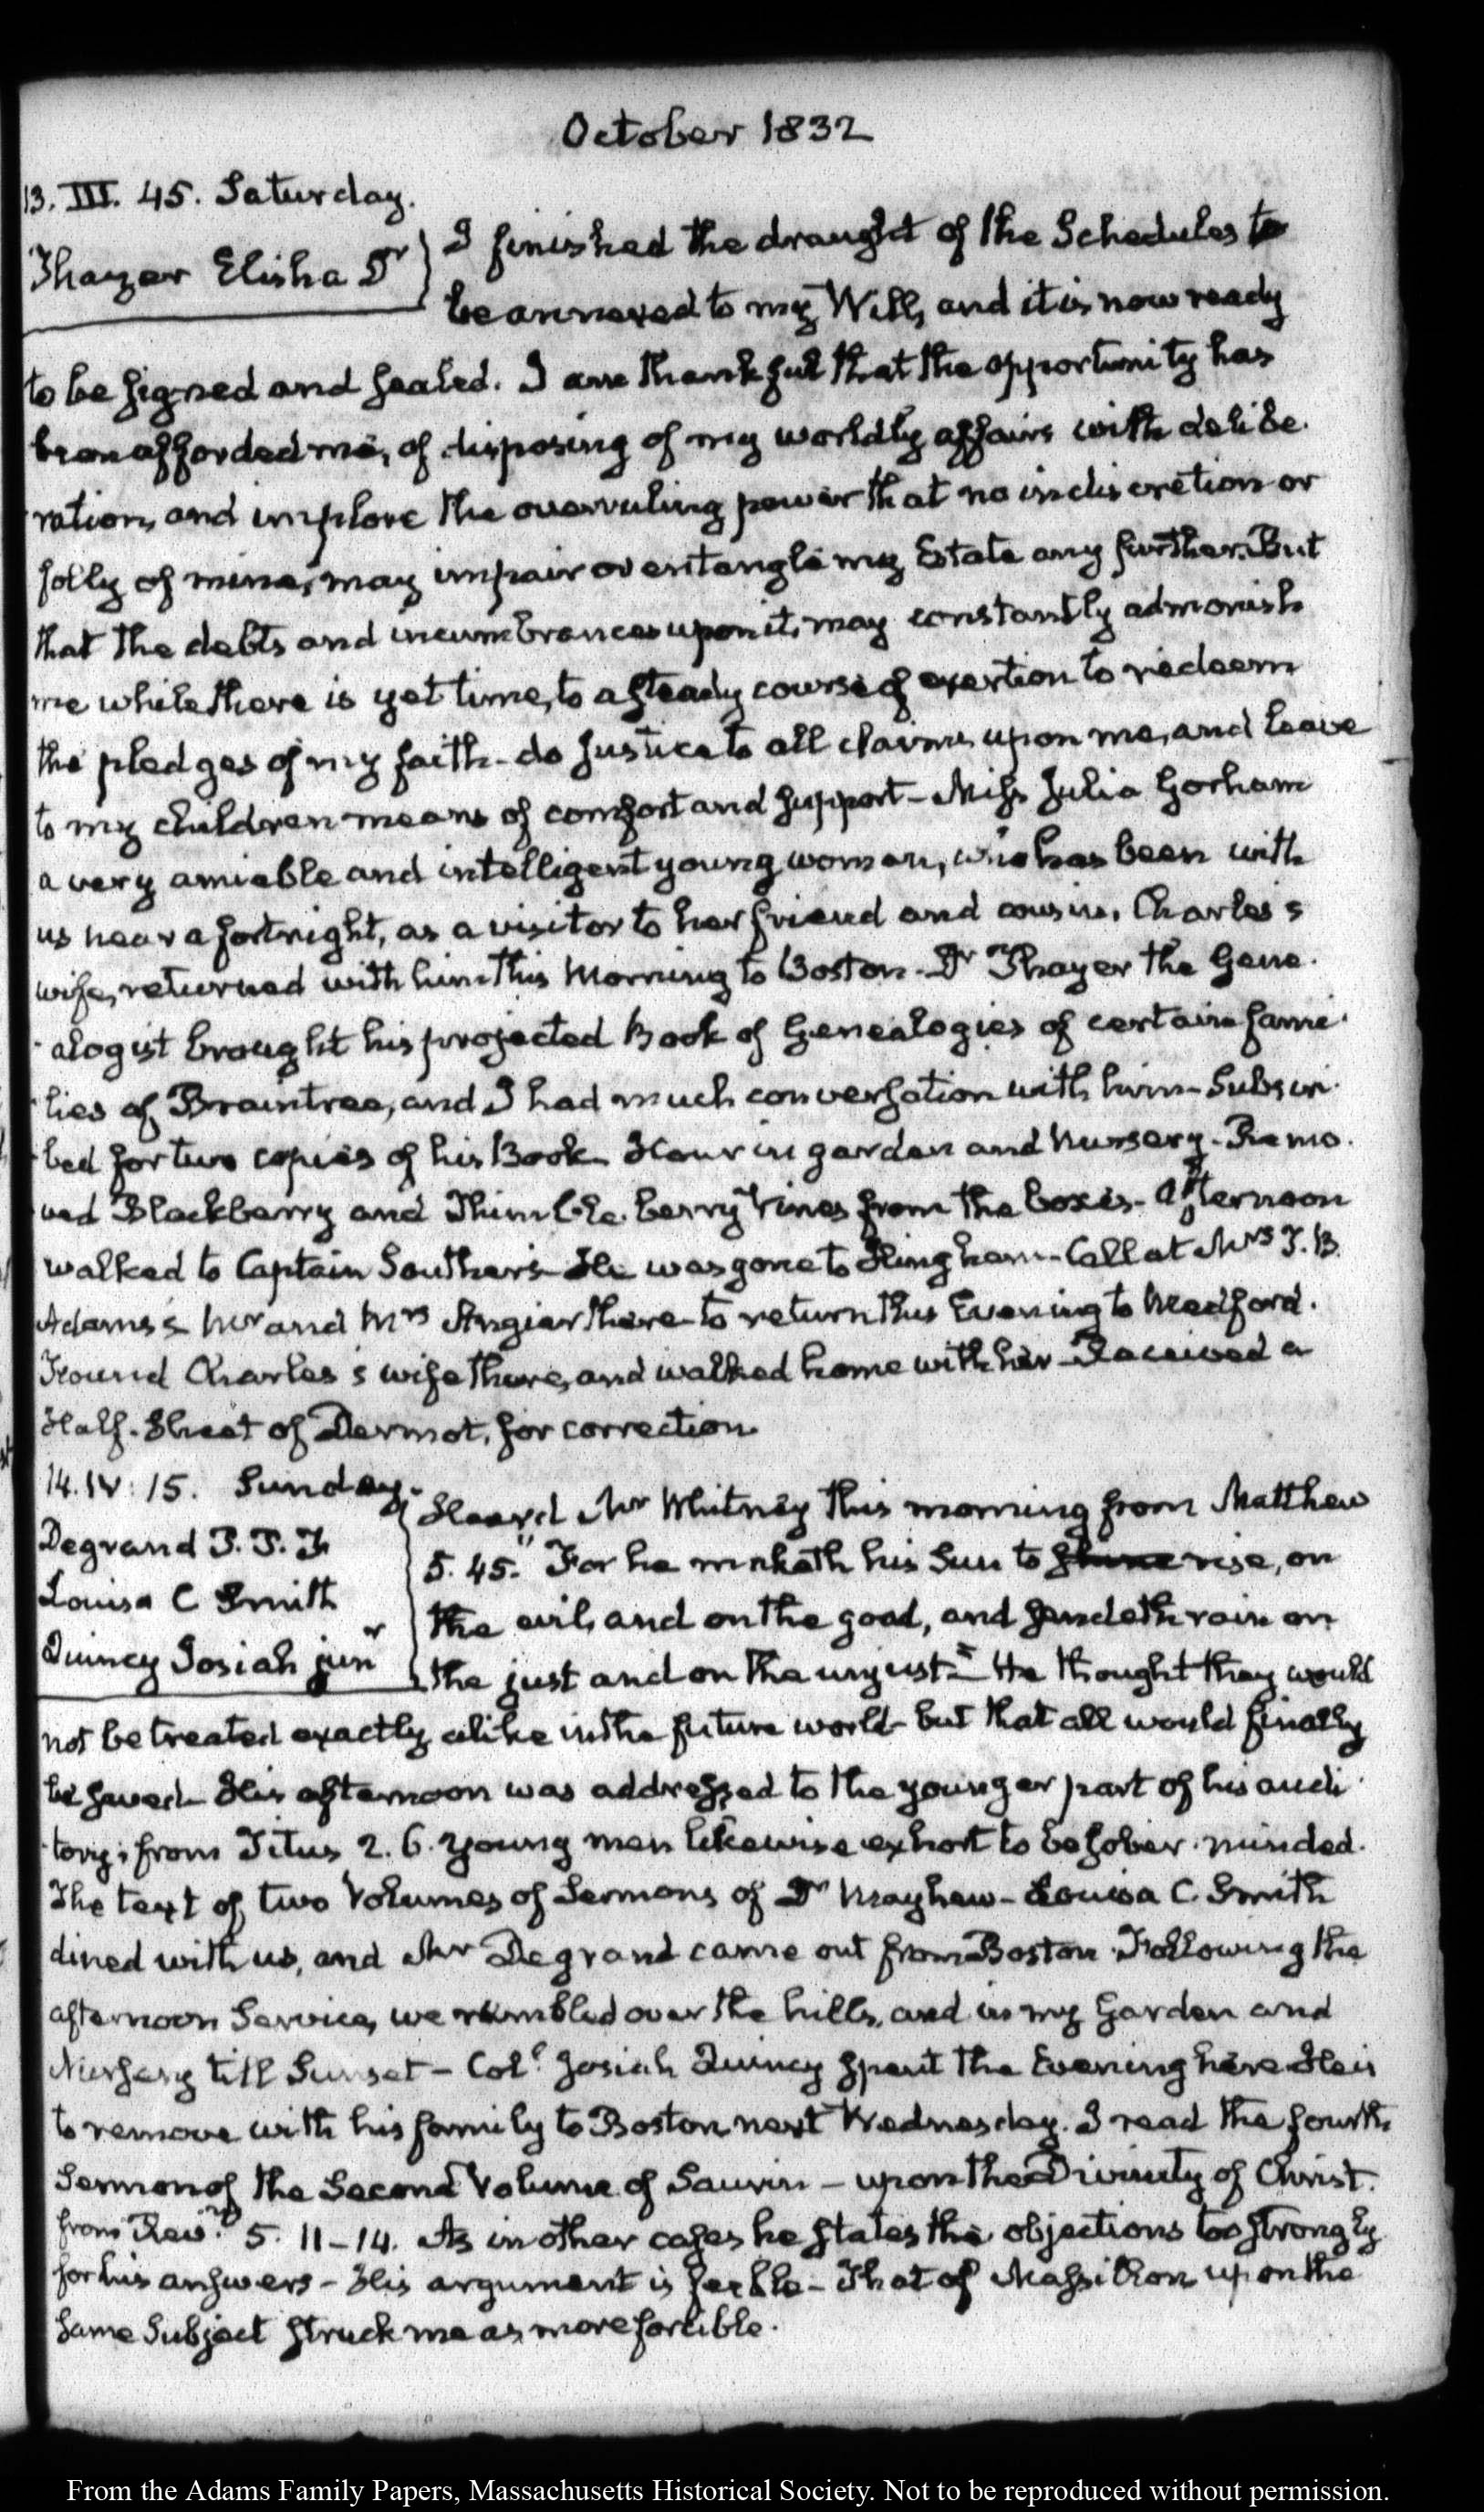 October 1832
13. III. 45. Saturday.
Thayer Elisha Dr
I finished the draught of the Schedules to
be annexed to my Will, and it is now ready
to be signed and sealed. I am thankful that the opportunity has
been afforded me, of disposing of my worldly affairs with delibe-
ration, and implore the overruling power that no indiscretion or
folly of mine, may impair or entangle my Estate any further. But
that the debts and incumbrances upon it, may constantly admonish
me while there is yet time, to a steady course of exertion to redeem
the pledges of my faith- do justice to all claims upon me, and leave
to my children means of comfort and support- Miss Julia Gorham
a very amiable and intelligent young woman, who has been with
us near a fortnight, as a visitor to her friend and cousin, Charles's
wife, returned with him this Morning to Boston- Dr Thayer the Gene-
-alogist brought his projected Book of Genealogies of certain fami-
-lies of Braintree, and I had much conversation with him- Subscri-
-bed for two copies of his Book- Hour in garden and Nursery- Remo-
-ved Blackberry and Thimble-berry Vines from the boxes- Afternoon
walked to Captain Souther's- He was gone to Hingham- Call at Mrs T. B.
Adams's Mr and Mrs Angier there- to return this Evening to Medford.
Found Charles's wife there, and walked home with her- Received a
Half-Sheet of Dermot, for correction.
14. IV: 15. Sunday.
Degrand P. P. F
Louisa C Smith
Quincy Josiah junr
Heard Mr Whitney this morning from Matthew
5. 45. "For he maketh his Sun to shine rise, on
the evil, and on the good, and sendeth rain on
the just and on the unjust." He thought they would
not be treated exactly alike in the future world- but that all would finally
be saved- His afternoon was addressed to the younger part of his audi-
-tory; from Titus 2. 6. Young men likewise exhort to be sober-minded.
The text of two Volumes of Sermons of Dr Mayhew- Louisa C Smith
dined with us, and Mr Degrand came out from Boston. Following the
afternoon Service, we rambled over the hills, and in my Garden and
Nursery till Sunset- Coll Josiah Quincy spent the Evening here- He is
to remove with his family to Boston next Wednesday. I read the fourth
Sermon of the Second Volume of Saurin- upon the Divinity of Christ.
from Revn 5. 11-14. As in other cases he states the objections too strongly
for his answers- His argument is feeble- That of Massillon upon the
same Subject struck me as more forcible.
From the Adams Family Papers, Massachusetts Historical Society. Not to be reproduced without permission.